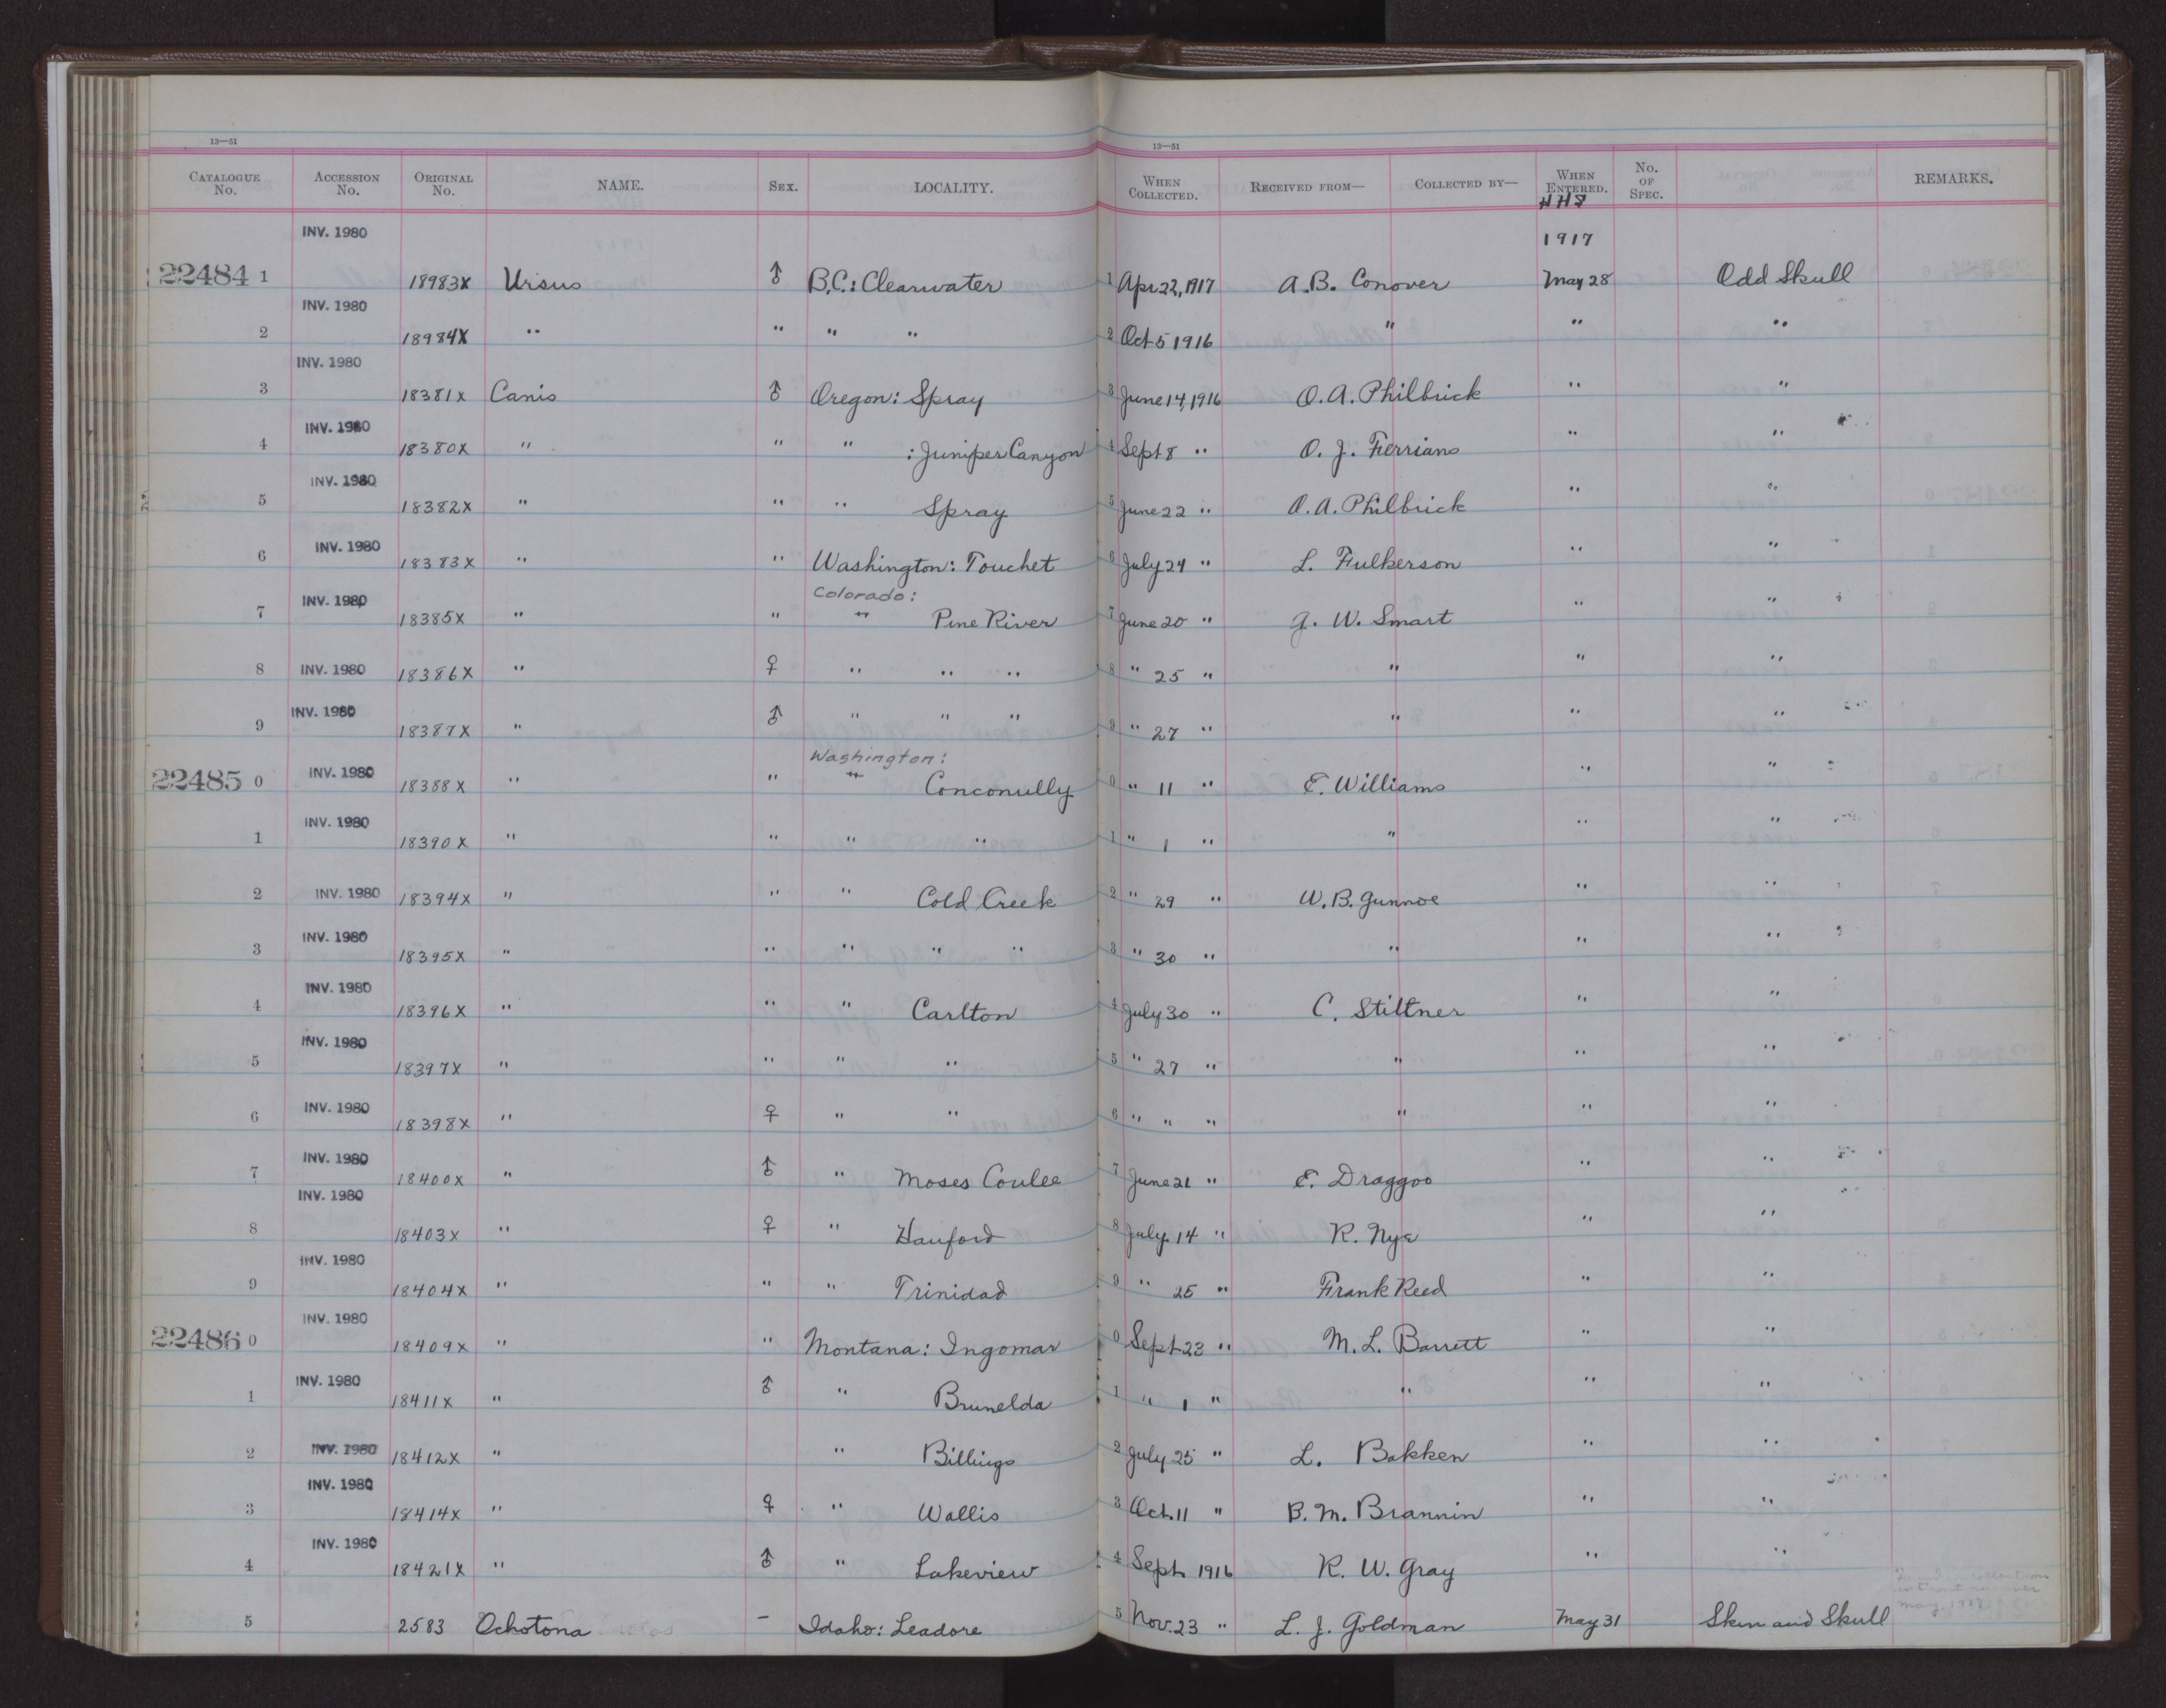 13—51 13—51
CATALOGUE No. ACCESSION No. ORIGINAL No. NAME. SEX. LOCALITY. WHEN COLLECTED. RECEIVED FROM— COLLECTED BY— WHEN ENTERED. No. OF SPEC. REMARKS.
HHS
INV. 1980 1917
22484 1 18983X Ursus ♂ B.C.: Clearwater 1 Apr 22, 1917 A.B. Conover May 28 Odd Skull
INV. 1980
2 18984X " " " " 2 Oct 5 1916 " " "
INV. 1980
3 18381X Canis ♂ Oregon: Spray 3 June 14, 1916 O.A. Philbrick " "
INV. 1980
4 18380X " " " : Juniper Canyon 4 Sept 8 " O. J. Ferrians " "
INV. 1980
5 18382X " " " Spray 5 June 22 " O.A. Philbrick " "
INV. 1980
6 18383X " " Washington: Touchet 6 July 24 " L. Fulkerson " "
INV. 1980 Colorado:
7 18385X " " " Pine River 7 June 20 " G. W. Smart " "
8 INV. 1980 18386X " ♀ " " " 8 " 25 " " " "
INV. 1980
9 18387X " ♂ " " " 9 " 27 " " " "
Washington:
22485 0 INV. 1980 18388X " " " Conconully 0 " 11 " E. Williams " "
INV. 1980
1 18390X " " " " 1 " 1 " " " "
2 INV. 1980 18394X " " " Cold Creek 2 " 29 " W.B. Gunnoe " "
INV. 1980
3 18395X " " " " " 3 " 30 " " " "
INV. 1980
4 18396X " " " Carlton 4 July 30 " C. Stiltner " "
INV. 1980
5 18397X " " " " 5 " 27 " " " "
INV. 1980
6 18398X " ♀ " " 6 " " " " " "
INV. 1980
7 18400X " ♂ " Moses Coulee 7 June 21 " E. Draggoo " "
INV. 1980
8 18403X " ♀ " Hanford 8 July 14 " R. Nye " "
INV. 1980
9 18404X " " " Trinidad 9 " 25 " Frank Reed " "
INV. 1980
22486 0 18409X " " Montana: Ingomar 0 Sept 23 " M. L. Barrett " "
INV. 1980
1 18411X " ♂ " Brunelda 1 " 1 " " " "
2 INV. 1980 18412X " " Billings 2 July 25 " L. Bakken " "
INV. 1980
3 18414X " ♀ " Wallis 3 Oct. 11 " B. M. Brannin " "
INV. 1980
4 18421X " ♂ " Lakeview 4 Sept. 1916 R. W. Gray " "
5 2583 Ochotona – Idaho: Leadore 5 Nov. 23 " L. J. Goldman May 31 Skin and Skull